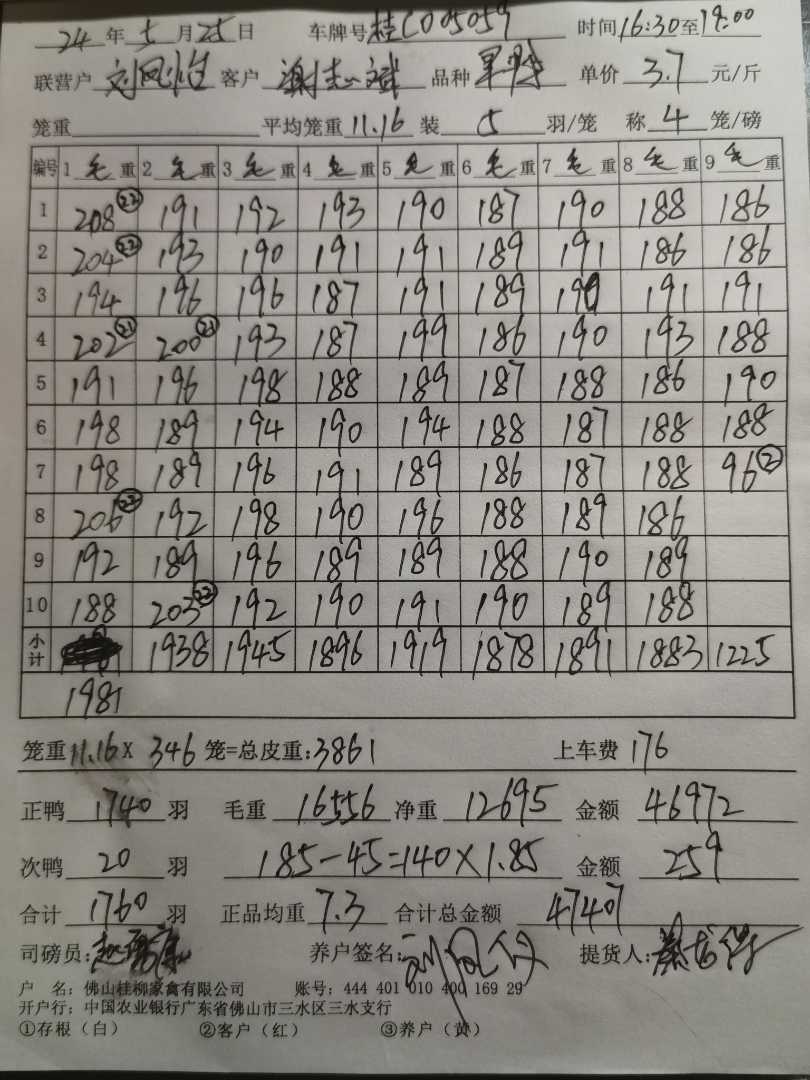 24 年 5 月 25 日 车牌号 桂C005059 时间 16:30 至 19:00
联营户 刘凤 客户 谢志斌 品种 单价 3.7 元/斤
笼重 平均笼重 11.16 装 5 羽/笼 称 4 笼/磅
编号 1 毛 重 2 毛 重 3 毛 重 4 毛 重 5 毛 重 6 毛 重 7 毛 重 8 毛 重 9 毛 重
1 208 ㉒ 191 192 193 190 187 190 188 186
2 204 ㉒ 193 190 191 191 189 191 186 186
3 194 196 196 187 191 189 190 191 191
4 202 ㉑ 200 ㉑ 193 187 199 186 190 193 188
5 191 196 198 188 189 187 188 186 190
6 198 189 194 190 194 188 187 188 188
7 198 189 196 191 189 186 187 188 96 ②
8 206 ㉒ 192 198 190 196 188 189 186
9 192 189 196 189 189 188 190 189
10 188 203 ㉒ 192 190 191 190 189 188
小计 1938 1945 1896 1919 1878 1891 1883 1225
1981
笼重 11.16 X 346 笼=总皮重: 3861 上车费 176
正鸭 1740 羽 毛重 16556 净重 12695 金额 46972
次鸭 20 羽 185-45=140×1.85 金额 259
合计 1760 羽 正品均重 7.3 合计总金额 47407
司磅员: 养户签名: 提货人:
户 名: 佛山桂柳家禽有限公司 账号: 444 401 010 400 169 29
开户行: 中国农业银行广东省佛山市三水区三水支行
①存根(白) ②客户(红) ③养户(黄)